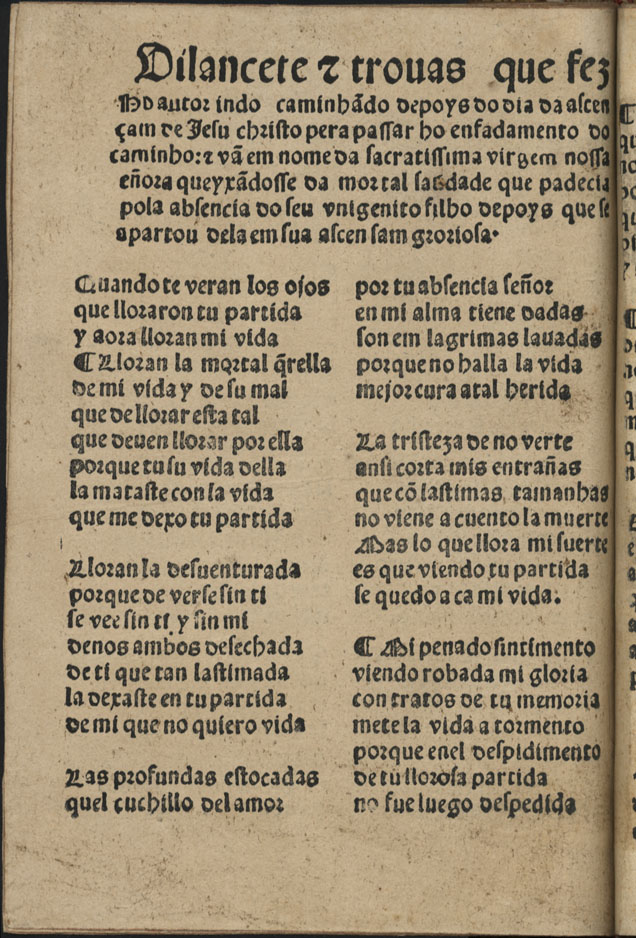 Vilancete ⁊ trouas que fez
Ho autor indo caminhãdo depoys do dia da ascen
çam de Jesu christo pera passar ho enfadamento do
caminho: ⁊ vã em nome da sacratissima virgem nossa
señora queyxãdosse da mortal saudade que padecia
pola absencia do seu vnigenito filho depoys que se
apartou dela em sua ascensam groriosa.
Cuando te veran los ojos
que lloraron tu partida
y aora lloran mi vida
¶ Lloran la mortal q̃rella
de mi vida y de su mal
que de llorar esta tal
que deuen llorar por ella
porque tu su vida della
la mataste con la vida
que me dexo tu partida
Lloran la desuenturada
porque de verse sin ti
se vee sin ti y sin mi
de nos ambos desechada
de ti que tan lastimada
la dexaste en tu partida
de mi que no quiero vida
Las profundas estocadas
quel cuchillo del amor
por tu absencia señor
en mi alma tiene dadas
son em lagrimas lauadas
porque no halla la vida
mejor cura a tal herida
La tristeza de no verte
ansi corta mis entrañas
que cõ lastimas tamanhas
no viene a cuento la muerte
Mas lo que llora mi suerte
es que viendo tu partida
se quedo a ca mi vida.
¶ Mi penado sintimento
viendo robada mi gloria
con tratos de tu memoria
mete la vida a tormento
porque enel despidimento
de tu llorosa partida
no fue luego despedida